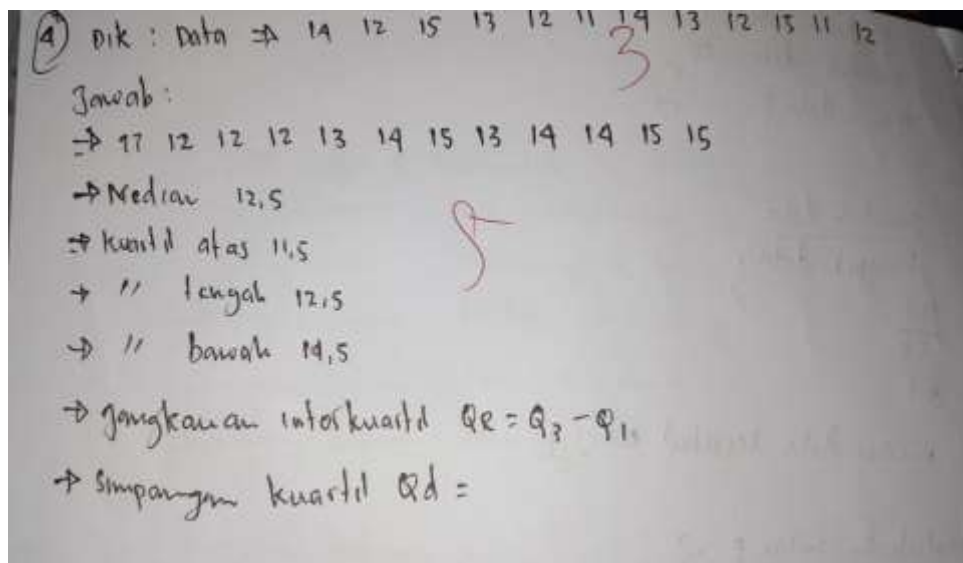 4) Dik : Data ⇒ 14 12 15 13 12 11 14 13 12 15 11 12
3
Jawab :
⇒ 11 12 12 12 13 14 15 13 14 14 15 15
→ Median 12,5
⇒ Kuartil atas 11,5
→ " tengah 12,5
→ " bawah 14,5
→ Jangkauan interkuartil QR = Q3 - Q1
→ Simpangan kuartil Qd =